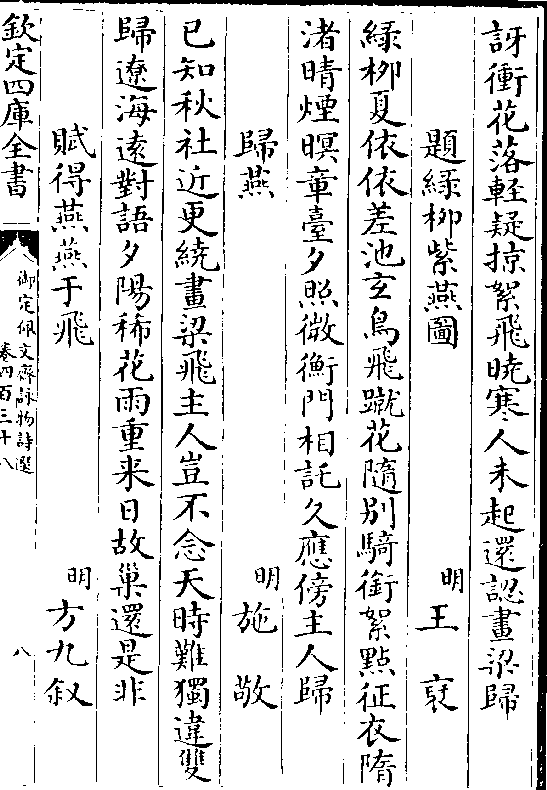 訝衝花落輕疑掠絮飛曉寒人未起還認畫梁歸
題綠柳紫燕圖　明　王　裒
綠柳夏依依差池玄鳥飛蹴花隨別騎銜絮點征衣隋
渚晴煙暝章臺夕照微衡門相託久應傍主人歸
歸燕　明　施　敬
已知秋社近更繞畫梁飛主人豈不念天時難獨違雙
歸遼海遠對語夕陽稀花雨重来日故巢還是非
賦得燕燕于飛　明　方九叙
欽定四庫全書
御定佩文齋詠物詩選
卷四百三十八
八